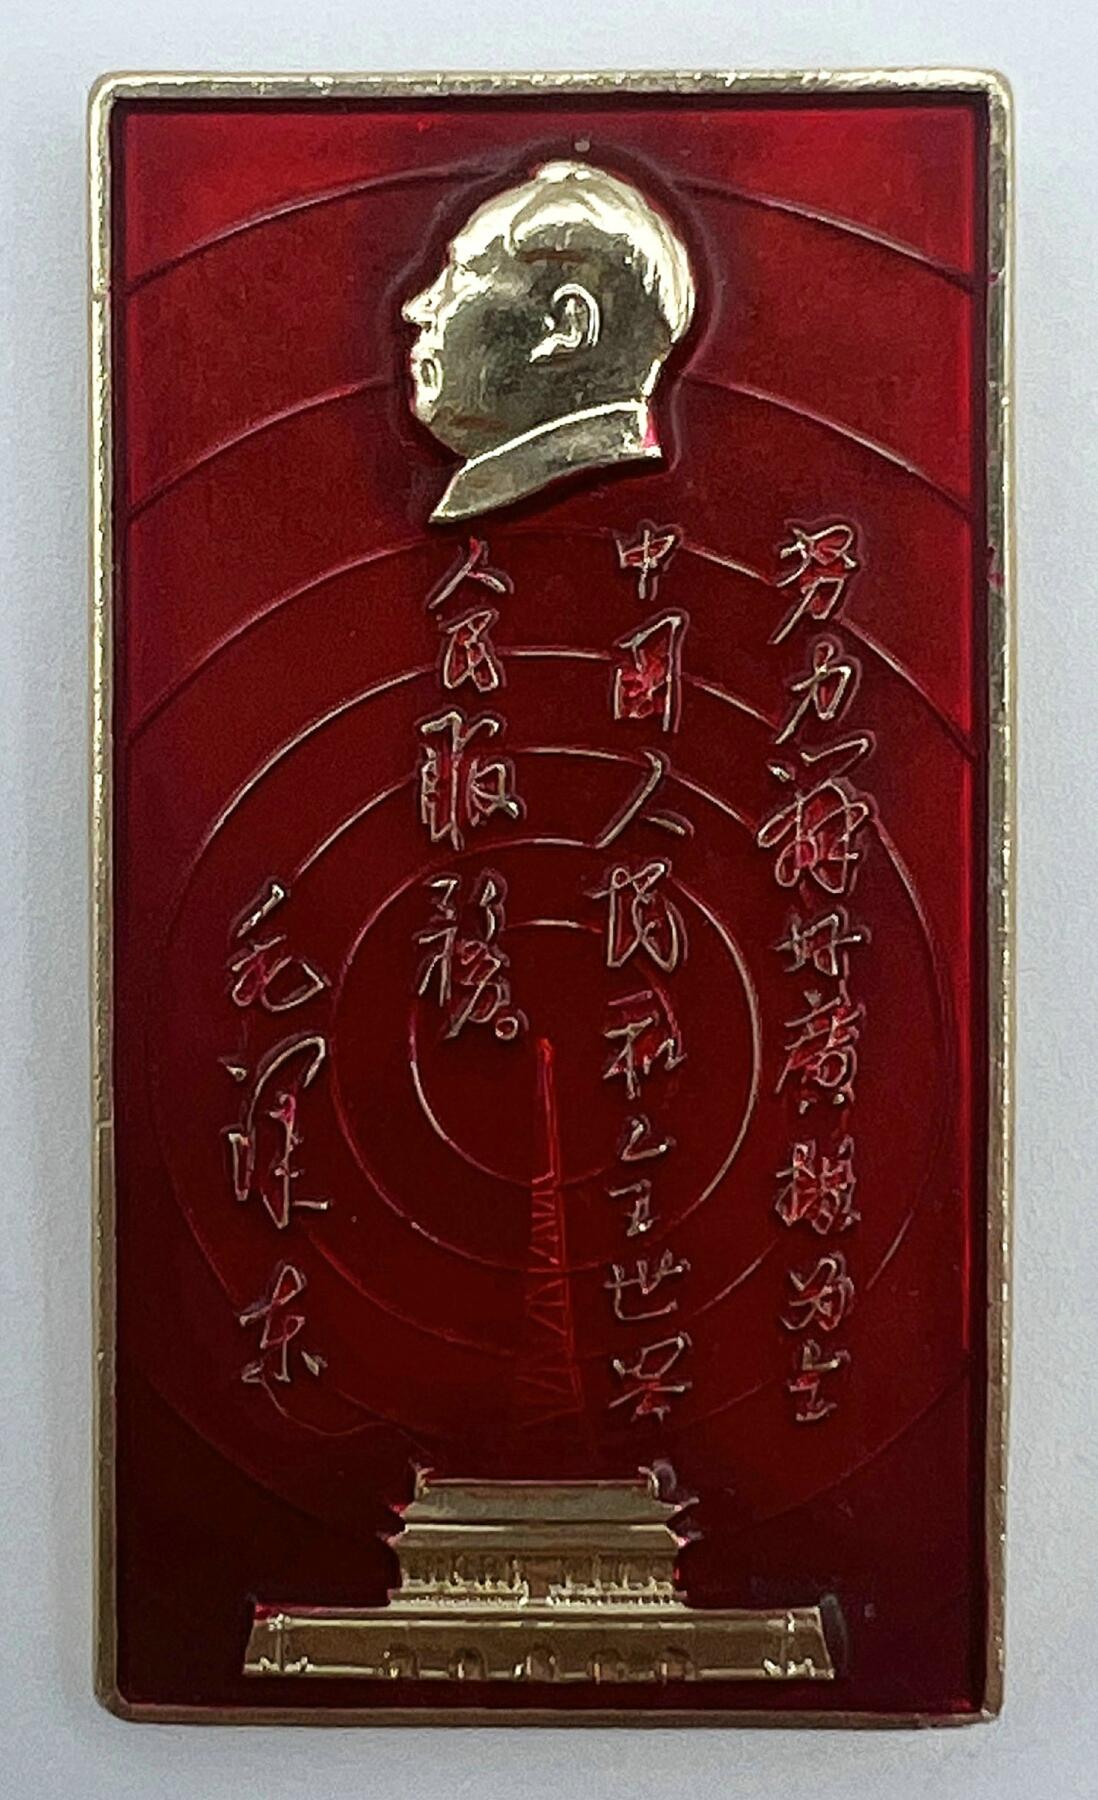 努力办好廣播为全
中国人民和全世界
人民服務。
毛泽东